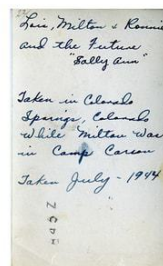 Lois, Milton & Ronnie
and the Future
"Sally Ann"
Taken in Colorado
Springs, Colorado
While Milton was
in Camp Carson
Taken July - 1944